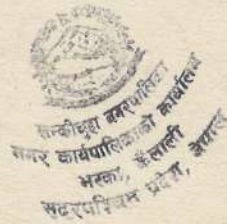 नगरपालिका
नगर कार्यपालिकाको कार्यालय
भरका, कैलाली
सुदूरपश्चिम प्रदेश, नेपाल